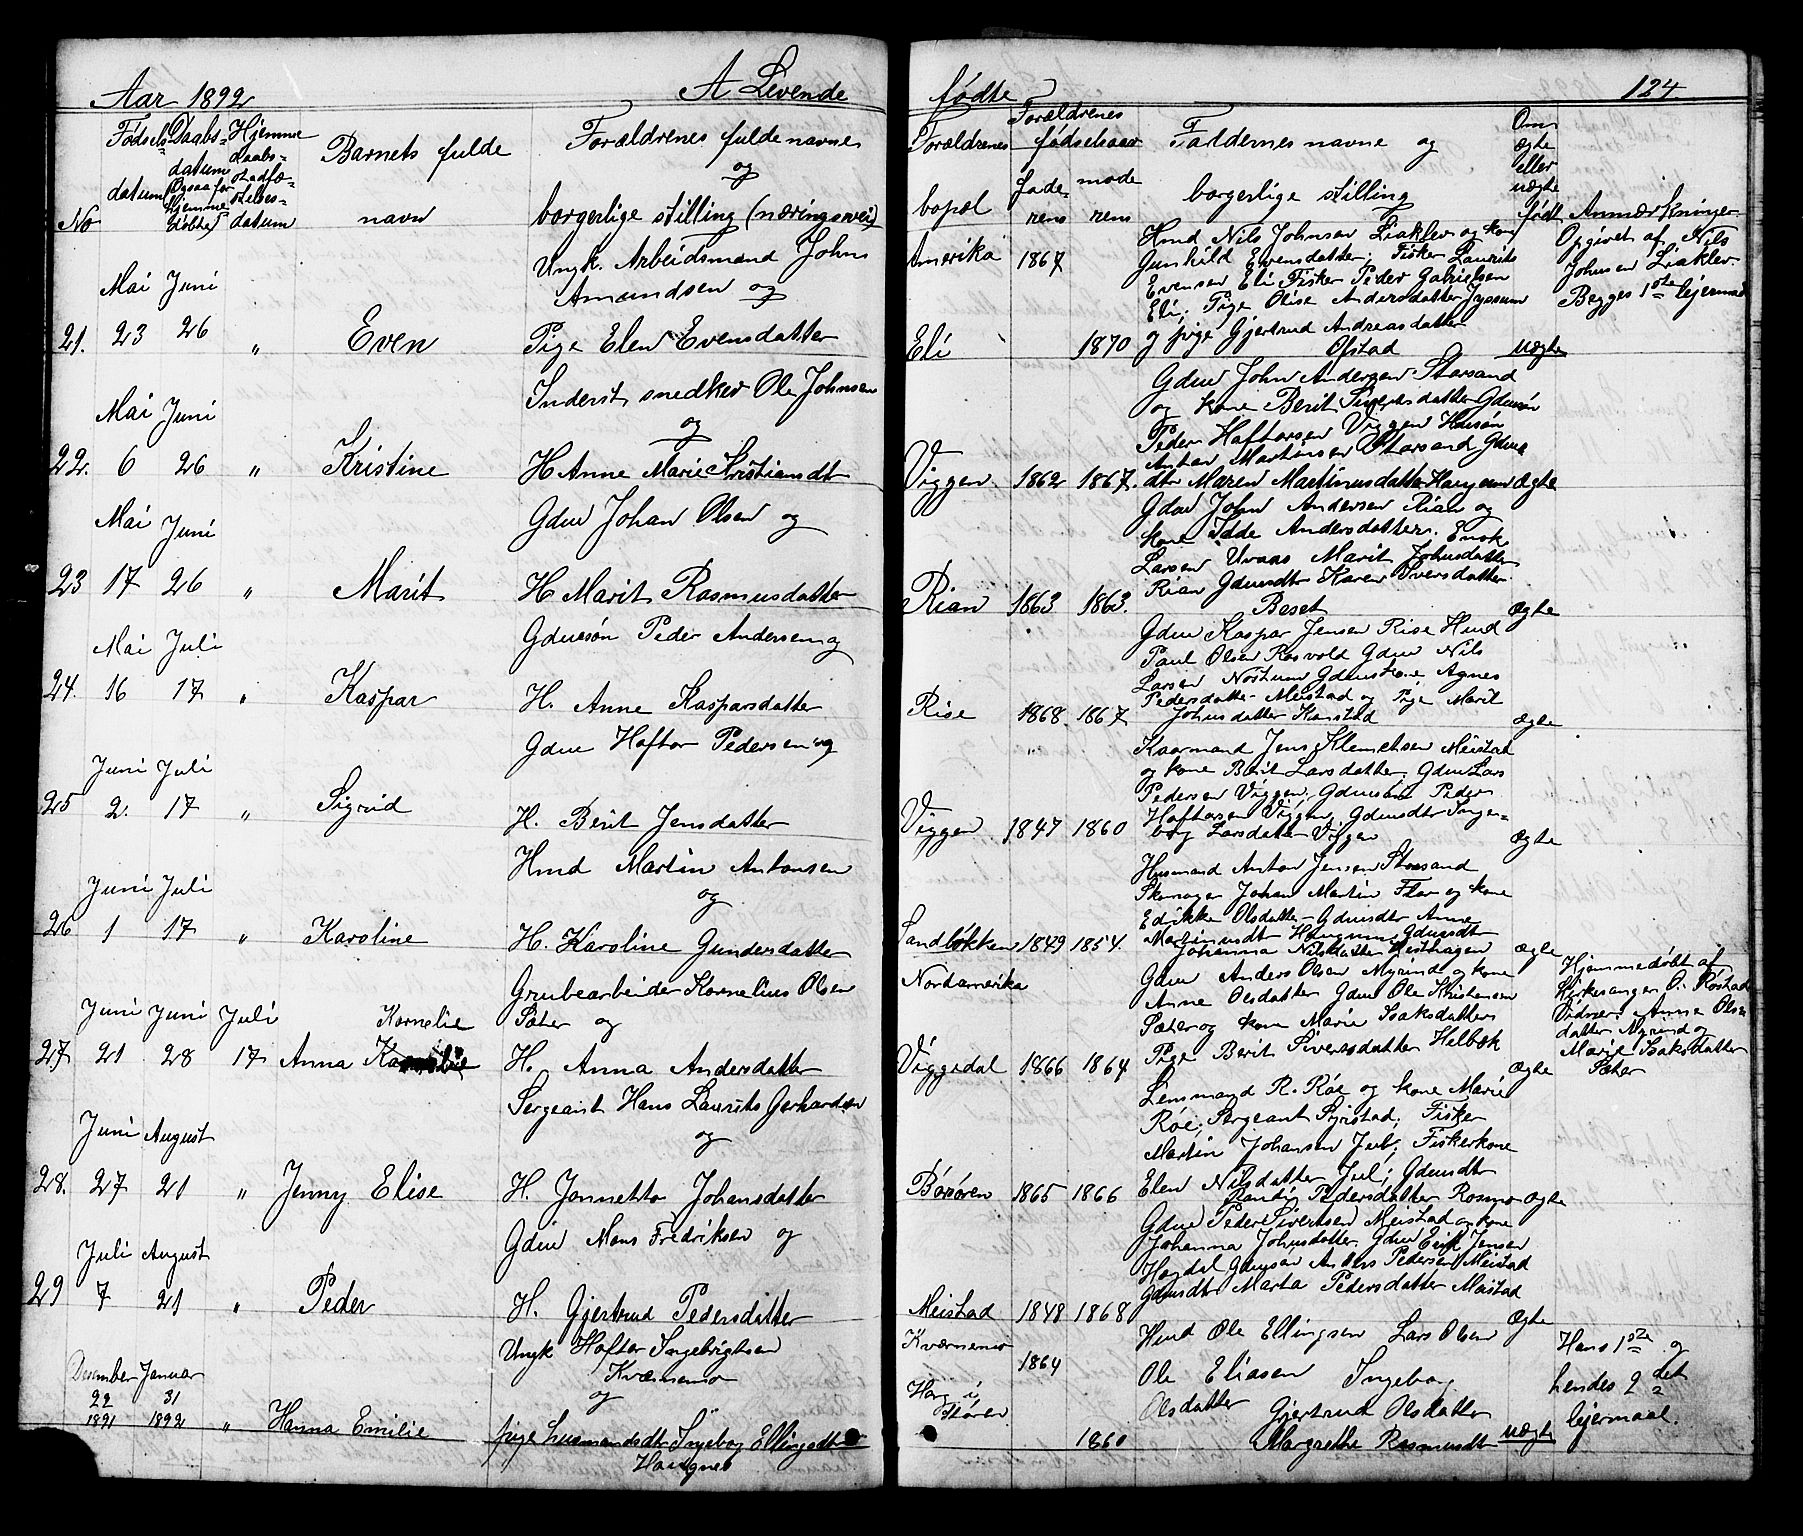 Aar 1892 A Levende
fødte 124
No
Fødsels-
datum
Daabs-
datum
Hjemme
daabs-
stadfæ-
stelses-
datum
Barnets fulde
navn
Forældrenes fulde navne
og
borgerlige stilling (næringsvei)
Forældrenes
bopæl
Forældrenes
fødselsaar
fade-
rens
mode
rens
Faddernes navne og
borgerlige stilling
Om
ægte
eller
uægte
født
Anmærkninger
Mai Juni
21. 23 26 " Even
Ungk. Arbeidsmand Johns
Amundsen og
Pige Elen Evensdatter
Amerika 1867
Eli 1870
Hmd Nils Johnsen Liaklev og kone
Gunhild Evensdatter, Fisker Laurits
Evensen Eli Fisker Peder Gabrielsen
Eli, Pige Olise Andersdatter
og pige Gjertrud Andreasdatter
Ofstad uægte
Opgivet af Nils
Johnsen Liaklev.
Begges 1ste lejermaal
Mai Juni
22. 6 26 " Kristine
Inderst, snedker Ole Johnsen
og
H. Anne Marie Kristiansdt
Viggen 1862 1867.
Gdmd John Andersen Storsand
og kone Berit Sivertsdatter Gdmsøn
Peder Haftorsen Viggen Hmdsøn
Anton Martinsen Storsand, Gdmd
dtr Maren Martinusdatter ægte
Mai Juni
23 17 26 " Marit
Gdmd Johan Olsen og
H. Marit Rasmusdatter
Rian 1863 1863.
Gdmd John Andersen Rian og
kone Andersdatter. Enok
Larsen Marit Johnsdatter
Rian Gdmdtr Karen Iversdatter
Beset ægte
Mai Juli
24. 16 17 " Kaspar
Gdmsøn Peder Andersen og
H. Anne Kasparsdatter
Rise 1868 1867
Gdmd Kaspar Jensen Rise Hmd
Paul Olsen Rosvold Gdmd Nils
Larsen Gdmdskone Agnes
Pedersdatter Meistad og Pige Marit
Johnsdatter ægte
Juni Juli
25 2. 17 " Sigrid
Gdmd Haftor Pedersen og
H. Berit Jensdatter
Viggen 1847 1860
Kaarmand Jens Klemetsen Meistad
og kone Berit Larsdatter, Gdmd Lars
Pedersen Viggen, Gdmsøn Peder
Haftorsen Viggen, Gdmdtr Inge=
borg Larsdatter Viggen ægte
Juni Juli
26 1 17 " Karoline
Hmd Martin Antonsen
og
H. Karoline Gundersdatter
Sandbækken 1849 1854.
Husmand Anton Jensen Storsand
Skomager Johan Martin og kone
Olsdatter Gdmdtr Anne
Martinusdt Gdmdtr
Johanna Nilsdatter ægte
Juni Juni Juli Kornelie
27 21 28 17 Anna
Grubearbeider Kornelius Olsen
Sæter og
H. Anna Andersdatter
Nordamerika
Viggedal 1866 1864
Gdmd Anders Olsen Myrmd og kone
Anne Olsdatter Gdmd Ole Kristensen
Sæter og kone Marie Isaksdatter
Pige Berit Siversdatter Helbæk ægte
Hjemmedøbt af
Kirkesanger O. Rostad
Vidner: Anna Olsn
datter Myrmd og
Marie Isaksdatter
Sæter
Juni August
28. 27 21 " Jenny Elise
Sergeant Hans Laurits Gerhardsen
og
H. Jonnetta Johansdatter
Børsøren 1865 1866
Lensmand R. Røe og kone Marie
Røe, Sergeant, Fisker
Martin Johansen Jul, Fiskerkone
Elen Nilsdatter Jul, Gdmdtr
Randi Pedersdatter Rosmo ægte
Juli August
29 7 21 " Peder
Gdmd Mons Fredriksen og
H. Gjertrud Pedersdatter
Meistad 1848 1868
Gdmd Peder Sivertsen Meistad og kone
Johanna Johnsdatter, Gdmd Erik Jensen
Høgdal Gdmsøn Anders Pedersen Meistad
Gdmdtr Marta Pedersdatter Meistad ægte
Desember Januar
22 31
1891 1892 " Hanna Emilie
Ungk Haftor Ingebrigtsen
Kværnemo
og
pige husmandsdtr Ingeborg Ellingsdtr
Haugnes
Kværnemo 1864
Horg i
Støren
1860
Hmd Ole Ellingsen Lars Olsen
Ole Eliasen Ingeborg
Olsdatter Gjertrud Olsdatter
Margrethe Rasmusdt uægte
Hans 1ste og
hendes 2det
lejermaal.